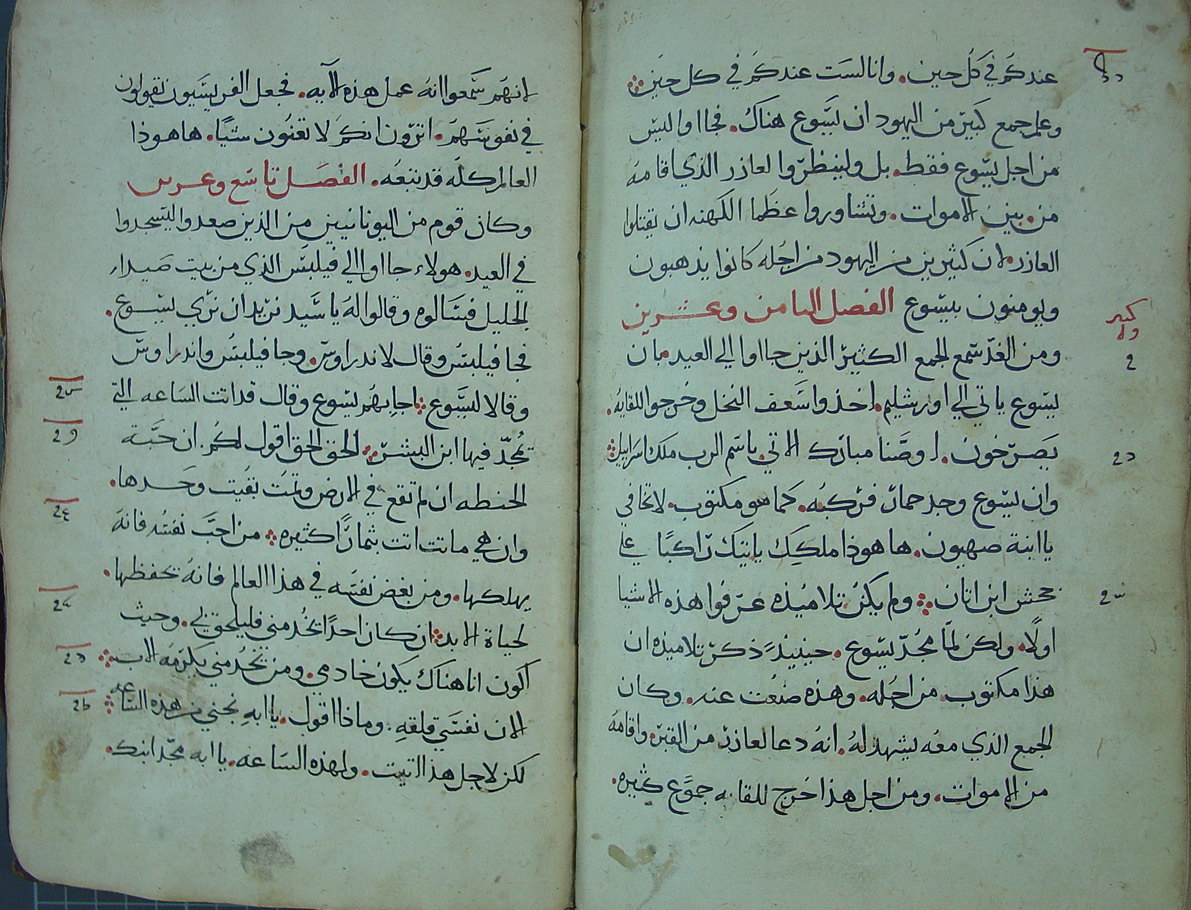 عندكم في كل حين. وانا لست عندكم في كل حين
وعلم جمع كبير من اليهود ان يسوع هناك. فجااو اليس
من اجل يسوع فقط. بل ولينظروا لعازر الذي اقامه
من بين الاموات. وتشاوروا عظما الكهنه ان يقتلوا
العازر. لان كثيرين من اليهود من اجله كانوا يذهبون
ويومنون بيسوع الفصل الثامن وعشرين
ومن الغد سمع الجمع الكثير الذين جااوا الي العيد بان
يسوع ياتي الي اورشليم. اخذوا سعف النخل وخرجوا للقايه.
يصرخون. اوصنا مبارك الاتي باسم الرب ملك اسراييل
وان يسوع وجد حمار فركبه. كما هو مكتوب. لا تخافي
يا ابنة صهيون. ها هوذا ملكك ياتيك راكبا علي
جحش ابن اتان ولم يكن تلاميذه عرفوا هذه الاشيا
اولا. ولكن لما مجد يسوع. حينيذ ذكر تلاميذه ان
هذا مكتوب من اجله. وهذه صنعت عنه. وكان
الجمع الذي معه يشهد له. انه دعا لعازر من القبر. واقامه
من الاموات. ومن اجل هذا خرج للقايه جموع كثيره.
لانهم سمعوا انه عمل هذه الايه. فجعل الفريسيون يقولون
في نفوسهم. اترون انكم لا تغنون شيا. ها هوذا
العالم كله قد تبعه. الفصل تاسع وعشرين
وكان قوم من اليونانيين من الذين صعدوا اليسجدوا
في العيد. هولاء جااوا الي فيلبس الذي من بيت صيدا
الجليل فسالوه وقالوا له يا سيد نريد ان نري يسوع.
فجا فيلبس وقال لاندراوس. وجا فيلبس واندراوس
وقالا ليسوع اجابهم يسوع وقال قد اتت الساعه التي
تمجد فيها ابن البشر الحق الحق اقول لكم. ان حبة
الحنطه ان لم تقع في الارض وتمت بقيت وحدها.
وان هي ماتت اتت بثمار كثيره من احب نفسه فانه
يهلكها. ومن بغض نفسه في هذا العالم فانه يحفظها.
لحياة الابد ان كان احدا يخدمني فليلحق بي. وحيث
اكون انا هناك يكون خادمي. ومن يخدمني يكرمه الاب
الان نفسي قلقه. وماذا اقول. يا ابه نجني من هذه الساعه
لكن لاجل هذا اتيت. ولهذه الساعه. يا ابه مجد ابنك.